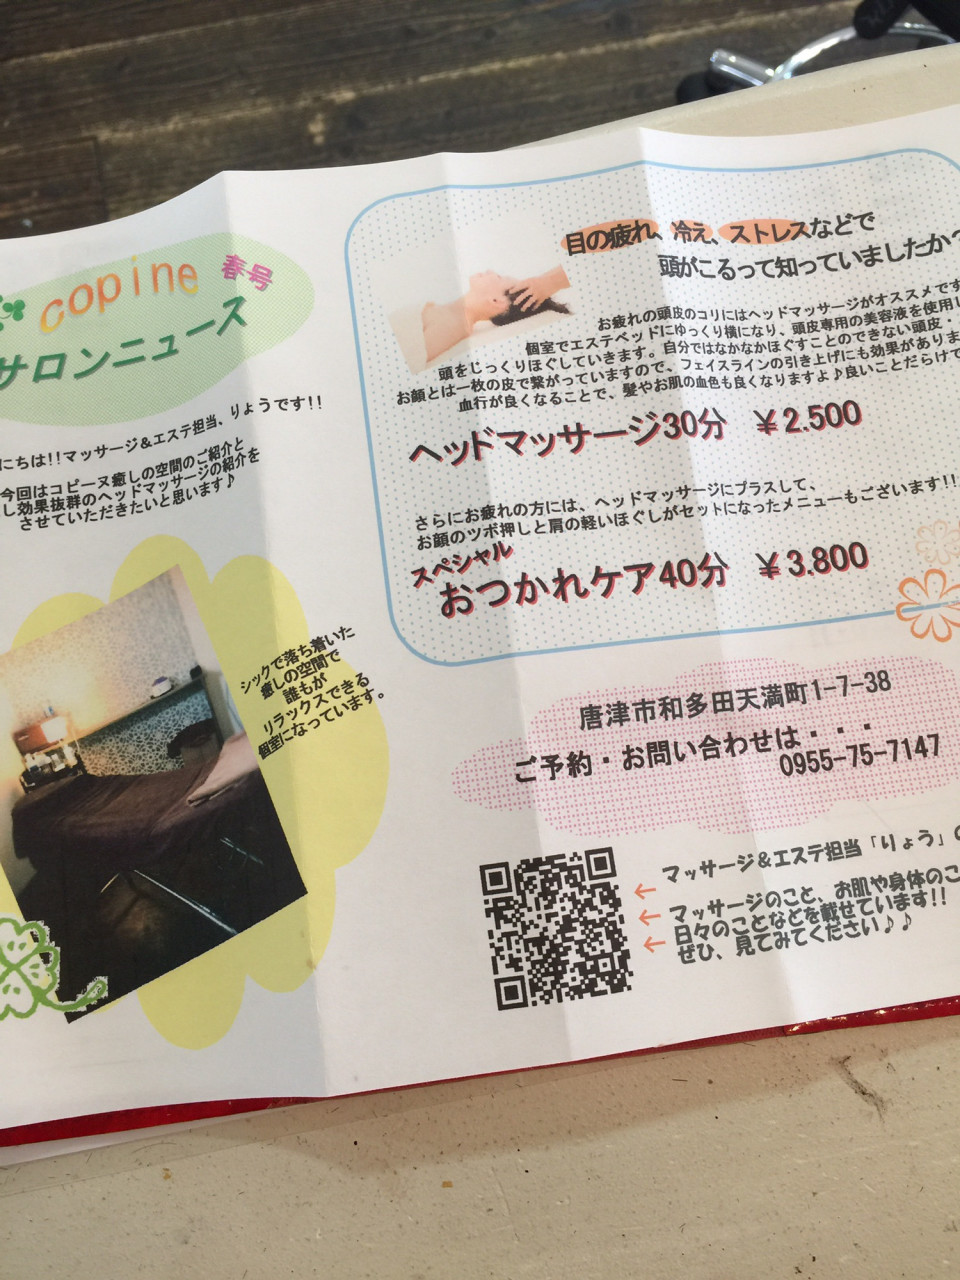 copine 春号
サロンニュース
にちは!!マッサージ&エステ担当、りょうです!!
今回はコピーヌ癒しの空間のご紹介と
し効果抜群のヘッドマッサージの紹介を
させていただきたいと思います♪
シックで落ち着いた
癒しの空間で
誰もが
リラックスできる
個室になっています。
目の疲れ、冷え、ストレスなどで
頭がこるって知っていましたか?
お疲れの頭皮のコリにはヘッドマッサージがオススメです
個室でエステベッドにゆっくり横になり、頭皮専用の美容液を使用し
頭をじっくりほぐしていきます。自分ではなかなかほぐすことのできない頭皮・
お顔とは一枚の皮で繋がっていますので、フェイスラインの引き上げにも効果がありま
血行が良くなることで、髪やお肌の血色も良くなりますよ♪良いことだらけで
ヘッドマッサージ30分 ¥2.500
さらにお疲れの方には、ヘッドマッサージにプラスして、
お顔のツボ押しと肩の軽いほぐしがセットになったメニューもございます!!
スペシャル
おつかれケア40分 ¥3.800
唐津市和多田天満町1-7-38
ご予約・お問い合わせは・・・
0955-75-7147
← マッサージ&エステ担当「りょう」の
← マッサージのこと、お肌や身体のこ
← 日々のことなどを載せています!!
ぜひ、見てみてください♪♪